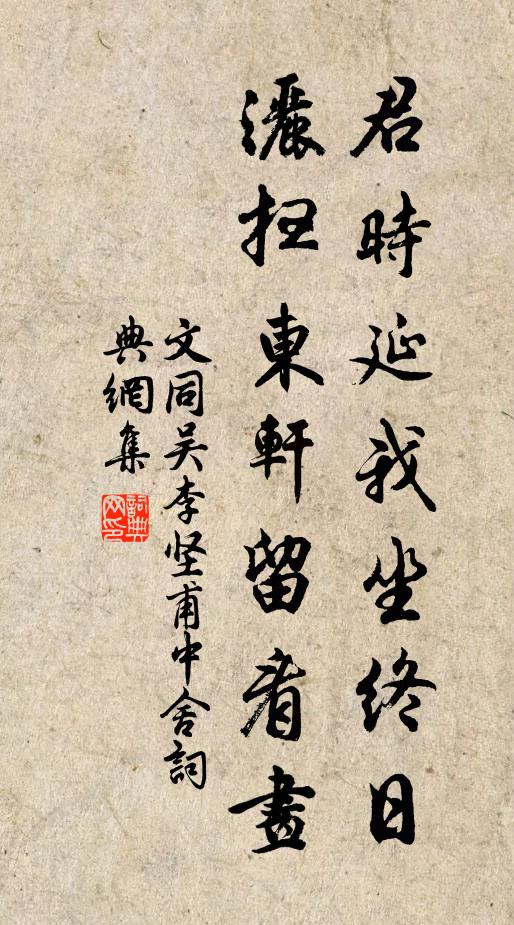 君時延我坐終日
灑掃東軒留看畫
文同吴李坚甫中舍詞
典網集
詞典网印